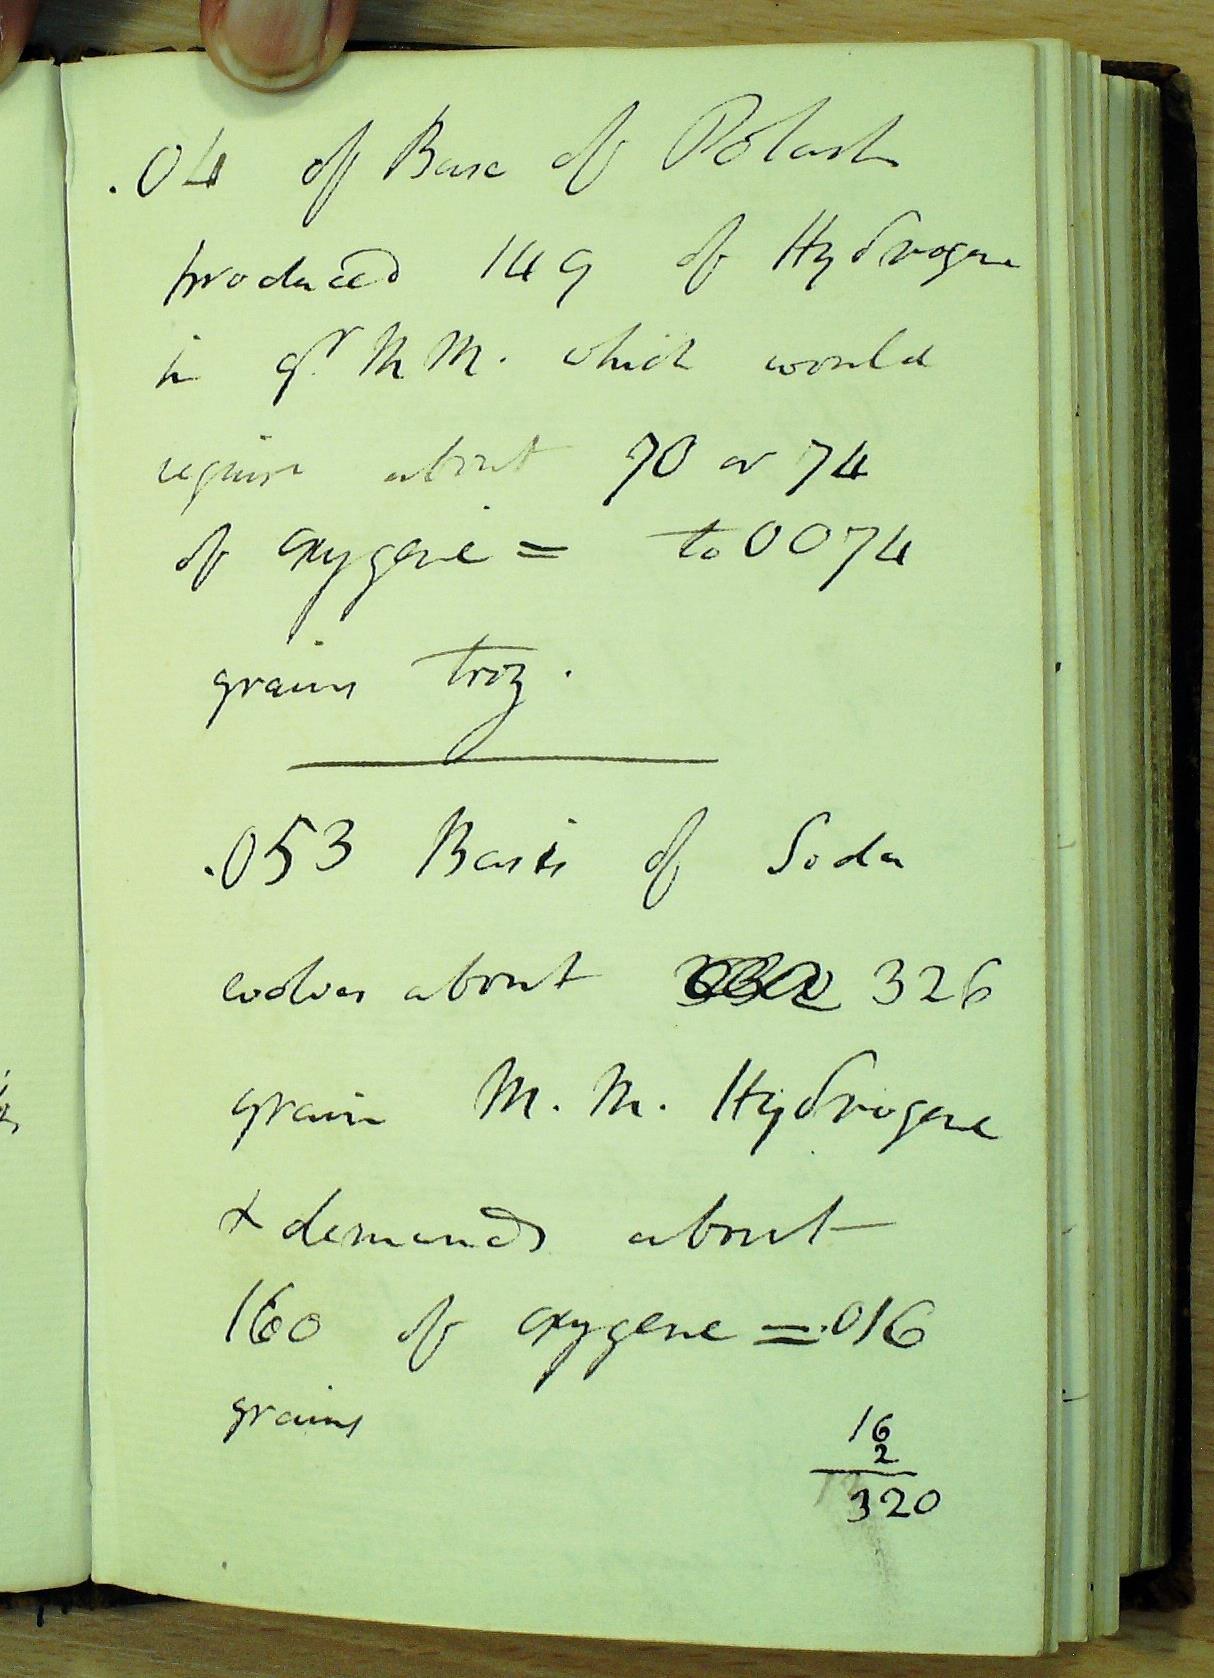 .04 of Base of Potash
produced 149 of Hydrogene
in gr M M. which would
require about 70 or 74
of oxygene = to 0074
grains troy.
.053 Basis of Soda
evolves about 326
grain M. M. Hydrogene
& demands about
160 of oxygene = .016
grains
16
2
320